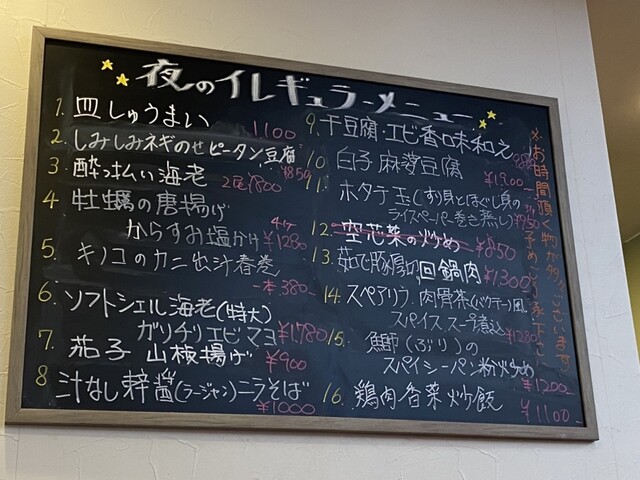 夜のイレギュラーメニュー
1. 皿しゅうまい 1100
2. しみしみネギのせピータン豆腐 ¥850
3 酔っ払い海老 2尾¥800
4 牡蠣の唐揚げ
からすみ塩かけ 4ヶ ¥1280
5. キノコのカニ出汁春巻
一本380
6. ソフトシェル海老(特大)
ガリチリエビマヨ ¥1,780
7. 茄子 山椒揚げ ¥900
8 汁なし辣醤(ラージャン)ニラそば
¥1000
9. 干豆腐・エビ香味和え
10 白子麻婆豆腐 ¥1900
11 ホタテ玉(すり身とほぐし身の
ライスペーパー巻き蒸し)
12. 空芯菜の炒め ¥850
13. 茹で豚厚切回鍋肉 ¥1,300
14. スペアリブ 肉骨茶(バクテー)風
スパイススープ煮込 1280
15. 鰤(ぶり)の
スパイシーパン粉炒め
¥1200
16. 鶏肉香菜炒飯
¥1100
※お時間頂く物が多くございます
予めご了承下さい